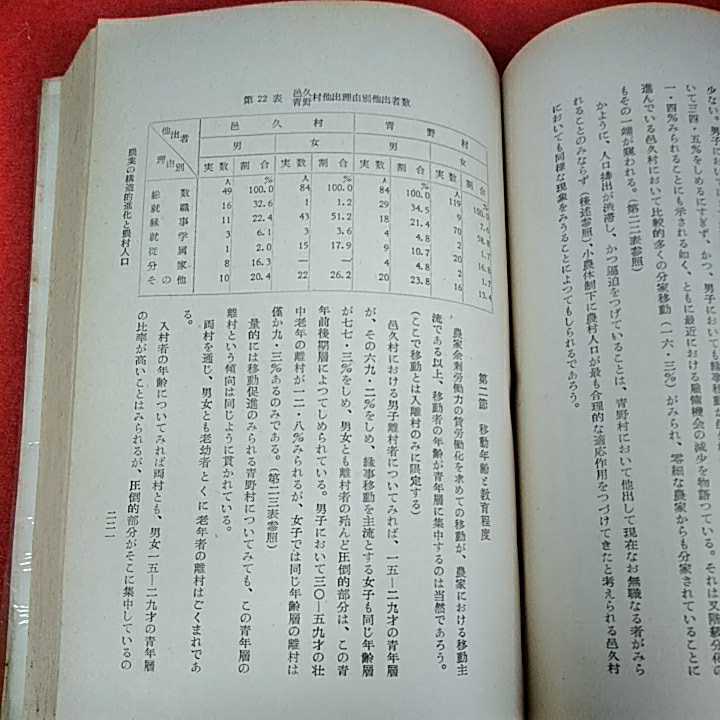 いて三四・五%をしめるにすぎず、かつ、男子においても縁事移動が
一・四%みられることにも示される如く、ともに最近における雇傭機会の減少を物語つている。それは又階級分化の
進んでいる邑久村において比較的多くの分家移動(一六・三%)がみられ、零細な農家からも分家されていることに
もその一端が窺われる。(第二二表参照)
かように、人口排出が渋滞し、かつ逼迫をつげていることは、青野村において他出して現在なお無職なる者がみら
れることのみならず(後述参照)、小農体制下に農村人口が最も合理的な適応作用をつづけてきたと考えられる邑久村
においても同様な現象をみうることによつてもしられるであろう。
第二節 移動年齢と教育程度
農家余剰労働力の賃労働化を求めての移動が、農家における移動主
流である以上、移動者の年齢が青年層に集中するのは当然であろう。
(ここで移動とは入離村のみに限定する)
邑久村における男子離村者についてみれば、一五―二九才の青年層
が、その六九・二%をしめ、縁事移動を主流とする女子も同じ年齢層
が七七・三%をしめ、男女とも離村者の殆んど圧倒的部分は、この青
年前後期層によつてしめられている。男子において三〇―五九才の壮
中老年の離村が一二・八%みられるが、女子では同じ年齢層の離村は
僅か九・三%あるのみである。(第二三表参照)
量的には移動促進のみられる青野村についてみても、この青年層の
離村という傾向は同じように貫かれている。
両村を通じ、男女とも老幼者とくに老年者の離村はごくまれであ
る。
入村者の年齢についてみれば両村とも、男女一五―二九才の青年層
の比率が高いことはみられるが、圧倒的部分がそこに集中しているの
第22表 邑久青野村他出理由別他出者数
他出者 理由別 邑久村 青野村
男 女 男 女
実数 割合 実数 割合 実数 割合 実数 割合
人 % 人 % 人 % 人 %
総数 49 100.0 84 100.0 84 100.0 119 100.0
就職 16 32.6 1 1.2 29 34.5 9
縁事 11 22.4 43 51.2 18 21.4 70
就学 3 6.1 3 3.6 4 4.8 2 1.7
従属 1 2.0 15 17.9 9 10.7 20
分家 8 16.3 — — 4 4.8 2 1.7
その他 10 20.4 22 26.2 20 23.8 16 13.4
農業の構造的進化と農村人口
二二一